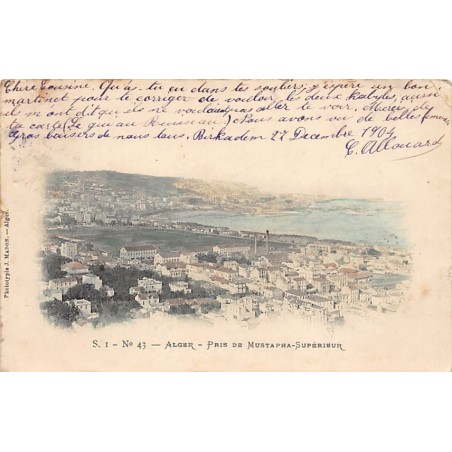 Chère Cousine. Qu'as-tu eu dans tes souliers, j'espère un bon
martinet pour te corriger de vouloir les deux Kabyles, aussi
ils m'ont dit qu'ils ne voudraient pas aller te voir. Merci de
ta carte (Le quai au Ruisseau) Nous avons vu de belles femmes
Gros baisers de nous tous. Birkadem 27 Decembre 1904
C. Allouard
Phototypie J. Madon. — Alger.
S. I - No 43 — ALGER - PRIS DE MUSTAPHA-SUPÉRIEUR